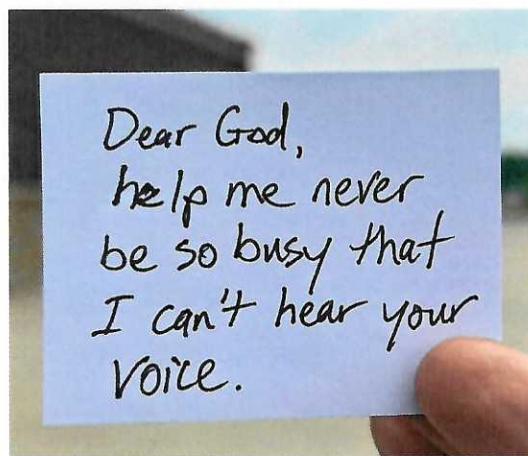 Dear God,
help me never
be so busy that
I can't hear your
voice.